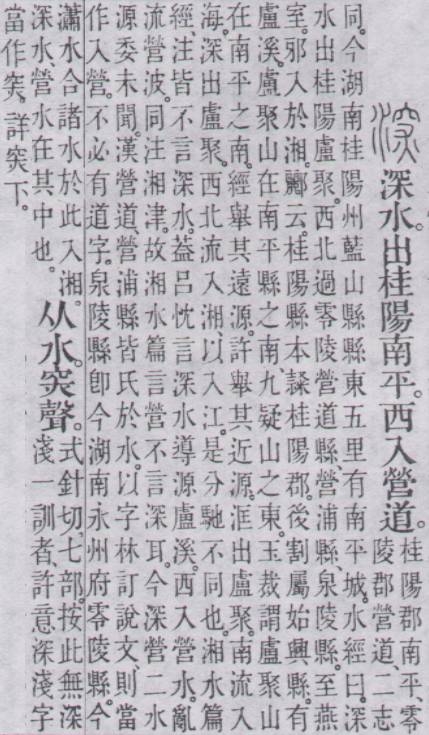 深水出桂陽南平。西入營道。
桂陽郡南平、零
陵郡營道、二志
同。今湖南桂陽州藍山縣縣東五里有南平城。水經曰。深
水出桂陽盧聚。西北過零陵營道縣、營浦縣、泉陵縣。至燕
室。邪入於湘。酈云。桂陽縣本隷桂陽郡。後割屬始興縣。有
盧溪。盧聚山在南平縣之南、九疑山之東。玉裁謂盧聚山
在南平之南。經舉其遠源。許舉其近源。洭出盧聚。南流入
海。深出盧聚。西北流入湘、以入江。是分馳不同也。湘水篇
經、注皆不言深水。葢呂忱言深水導源盧溪。西入營水。亂
流營波。同注湘津。故湘水篇言營不言深耳。今深營二水
源委未聞。漢營道、營浦縣皆氏於水。以字林訂說文、則當
作入營。不必有道字。泉陵縣卽今湖南永州府零陵縣。今
瀟水合諸水於此入湘。
深水、營水在其中也。
从水𥥍聲。
式針切。七部。按此無深
淺一訓者、許意深淺字
當作𥥍。詳𥥍下。